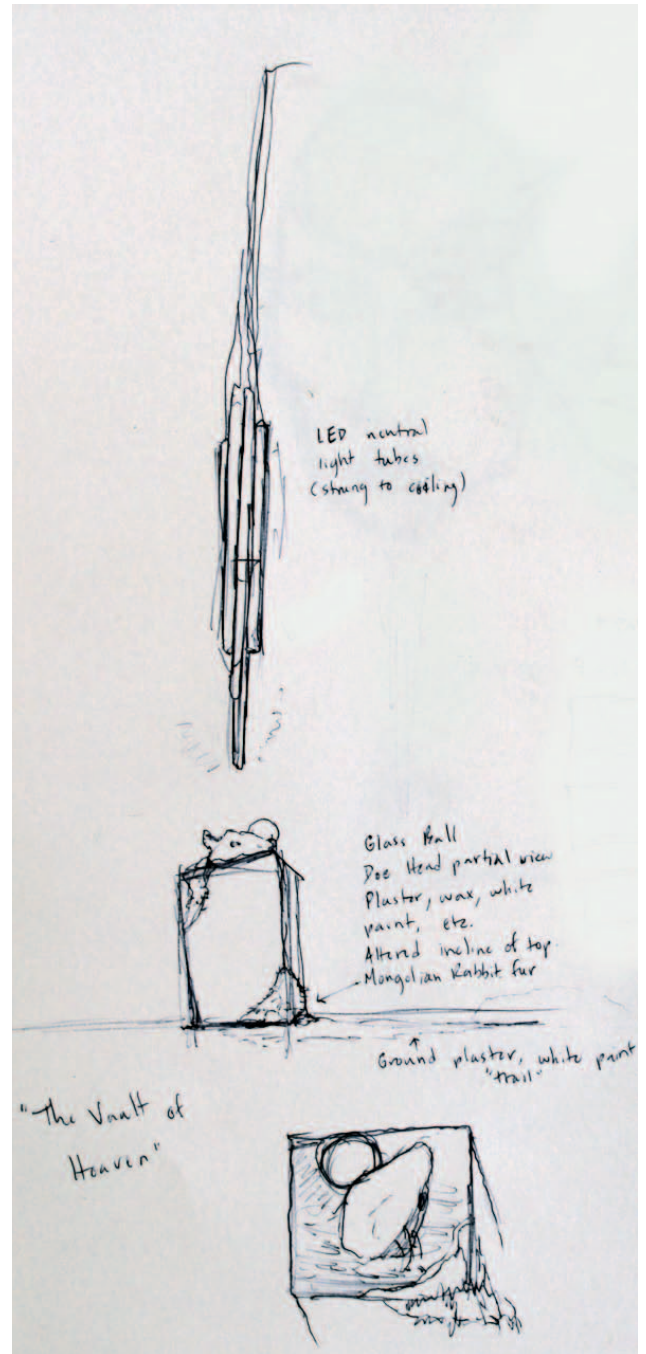 LED neutral
light tubes
(strung to ceiling)
Glass Ball
Doe Head partial view
Plaster, wax, white
paint, etc.
Altered incline of top.
Mongolian Rabbit fur
Ground plaster, white paint
"trail"
"The Vault of
Heaven"